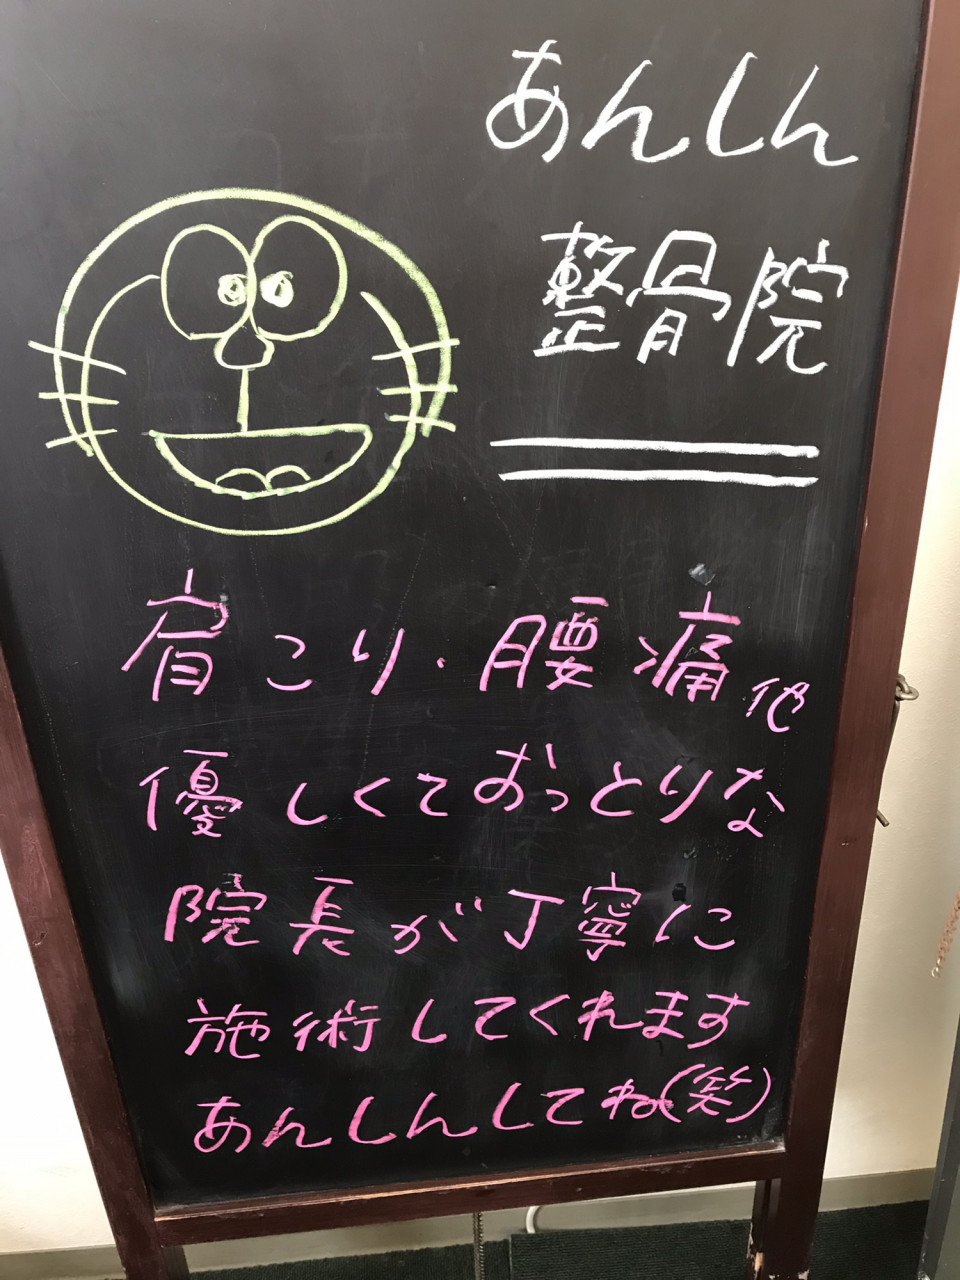 あんしん
整骨院
肩こり・腰痛他
優しくておっとりな
院長が丁寧に
施術してくれます
あんしんしてね(笑)